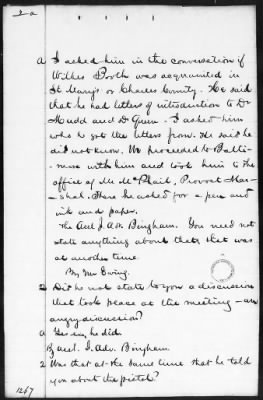 2-a
a I asked him in the conversation if
Wilkes Booth was acquainted in
St. Mary's or Charles County. He said
that he had letters of introduction to Dr
Mudd and Dr Queen. I asked him
who he got the letters from. He said he
did not know. We proceeded to Balti-
more with him and took him to the
office of Mr McPhail, Provost Mar-
shal. There he asked for a pen and
ink and paper.
The Asst J. Adv. Bingham. You need not
state anything about that, that was
at another time.
By Mr Ewing.
Q Did he not state to you a discussion
that took place at the meeting—an
angry discussion?
a Yes sir, he did.
By asst. J. Adv. Bingham.
Q Was that at the same time that he told
you about the pistol?
1247